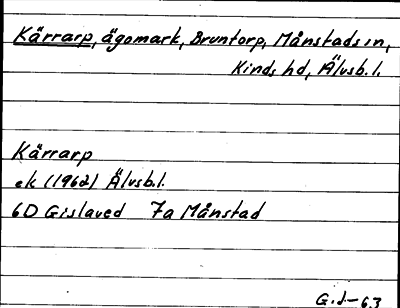 Kärrarp, ägomark, Bruntorp, Månstads sn,
Kinds hd, Älvsb.l.
Kärrarp
ek (1962) Älvsb.l.
6D Gislaved 7a Månstad
G.J-63